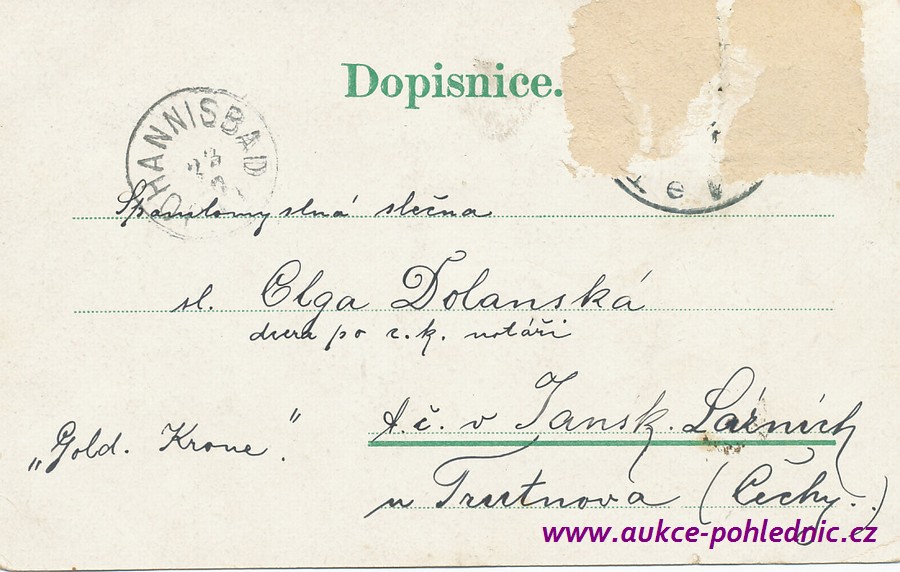 Dopisnice.
JOHANNISBAD
23
Spanilomyslná slečna
sl. Olga Dolanská
dcera po c. k. notáři
t. č. v Jansk. Lázních
„Gold. Krone“.
u Trutnova (Čechy.)
www.aukce-pohlednic.cz